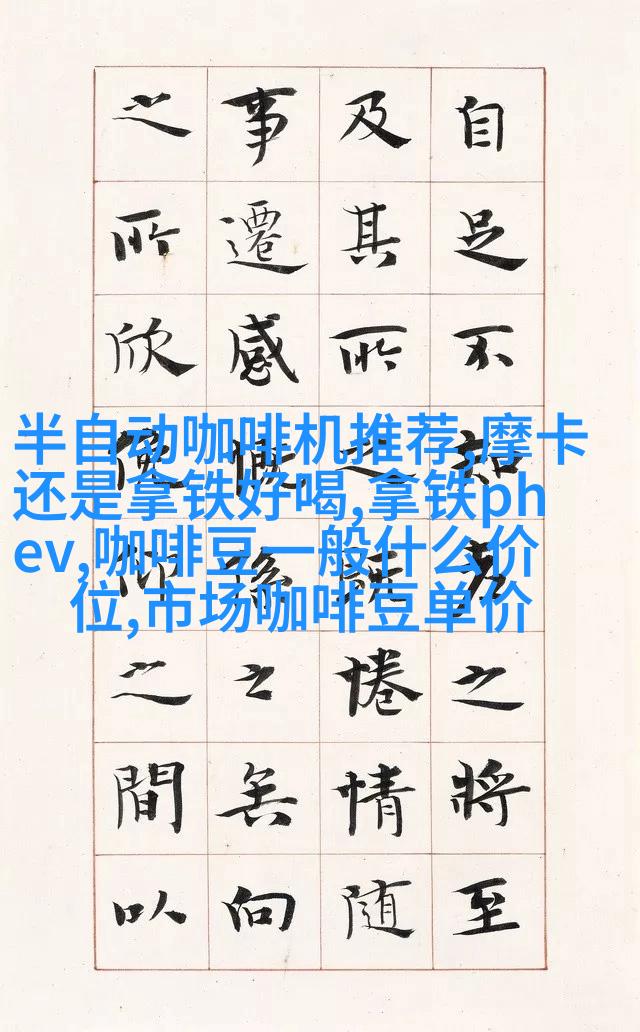 自足不知老之將至
及其所之既惓情隨
事遷感慨係之矣向
之所欣俛仰之間以
半自动咖啡机推荐,摩卡
还是拿铁好喝,拿铁ph
ev,咖啡豆一般什么价
位,市场咖啡豆单价